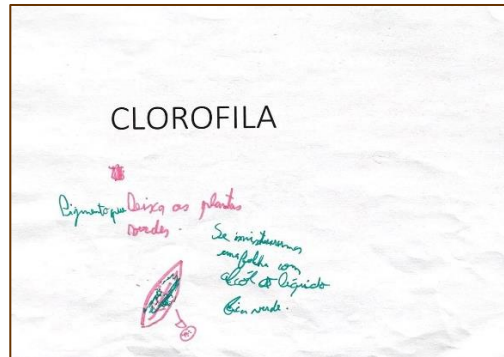 CLOROFILA
Pigmento que Deixa as plantas
verdes.
Se misturarmos
uma folha com
álcool o líquido
fica verde.